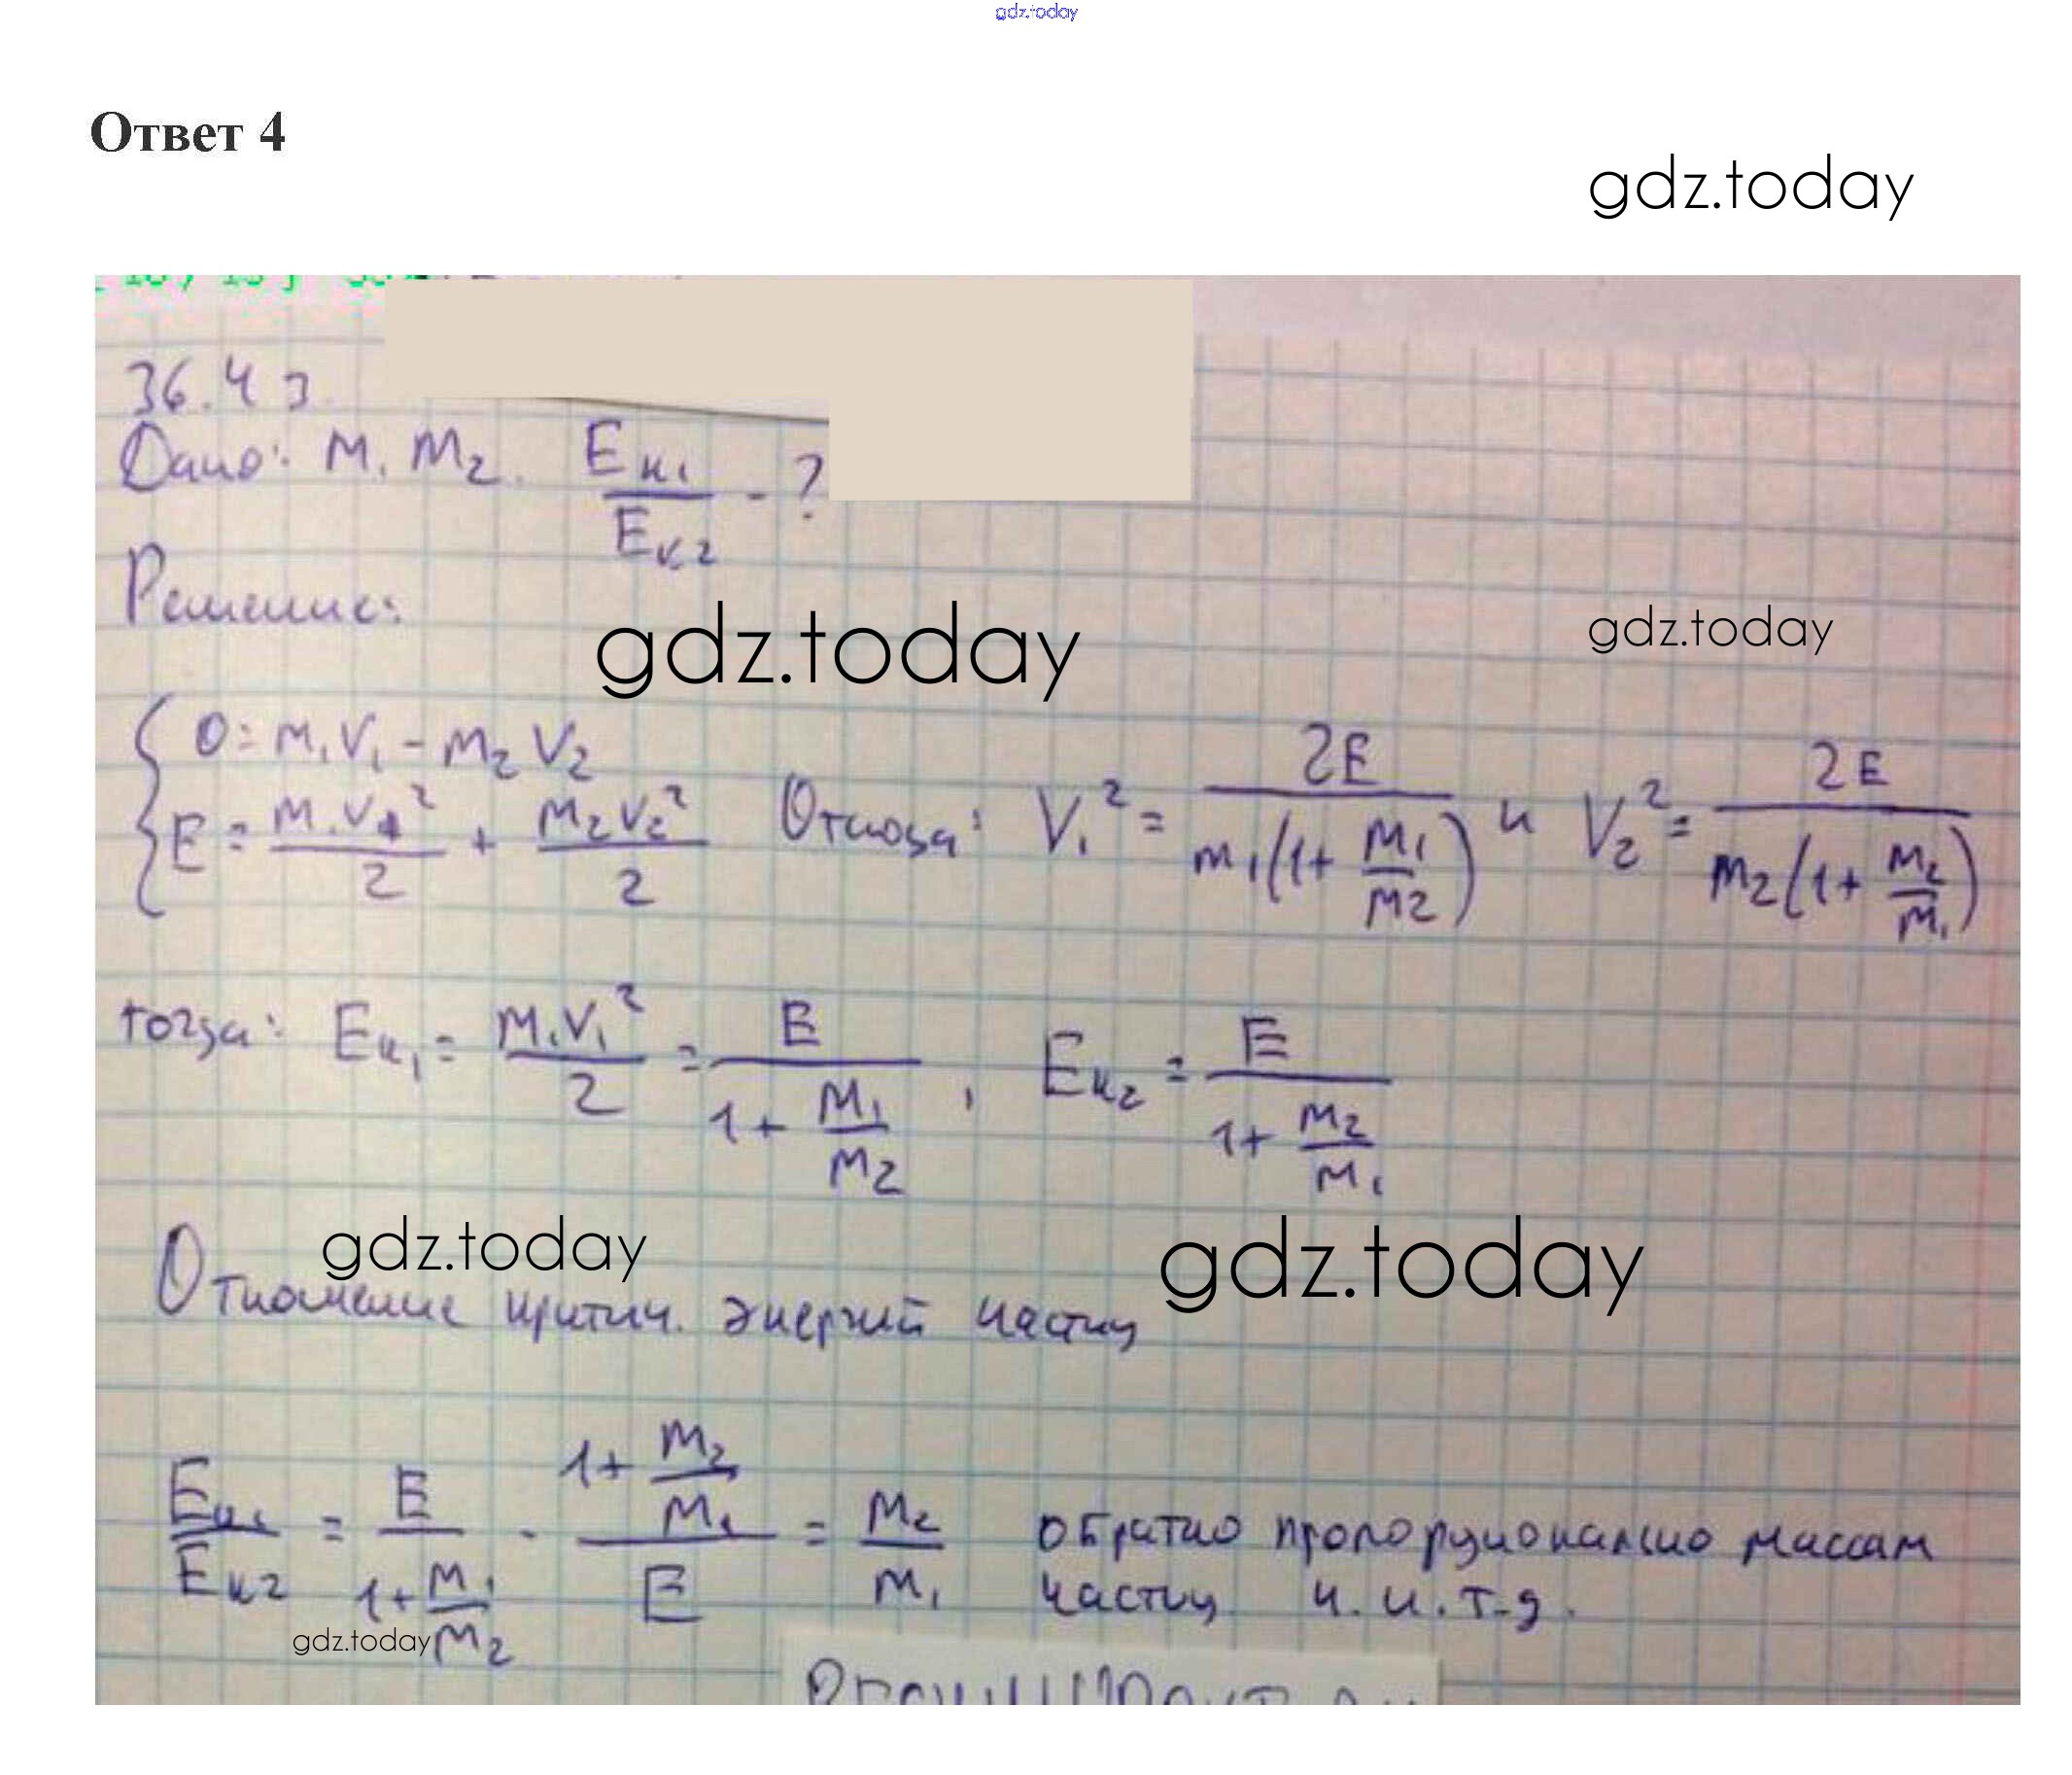 gdz.today
Ответ 4
gdz.today
36.4 з.
Дано: m₁ m₂. Eк₁/Eк₂ - ?
Решение:
gdz.today
gdz.today
0 = m₁V₁ - m₂V₂
E = m₁V₁²/2 + m₂V₂²/2 Отсюда: V₁² = 2E/(m₁(1+m₁/m₂)) и V₂² = 2E/(m₂(1+m₂/m₁))
тогда: Eк₁ = m₁V₁²/2 = E/(1+m₁/m₂), Eк₂ = E/(1+m₂/m₁)
gdz.today
gdz.today
Отношение критич. энергий частиц
Eк₁/Eк₂ = E/(1+m₁/m₂) · (1+m₂/m₁)/E = m₂/m₁ обратно пропорционально массам
частиц ч.и.т.д.
gdz.today